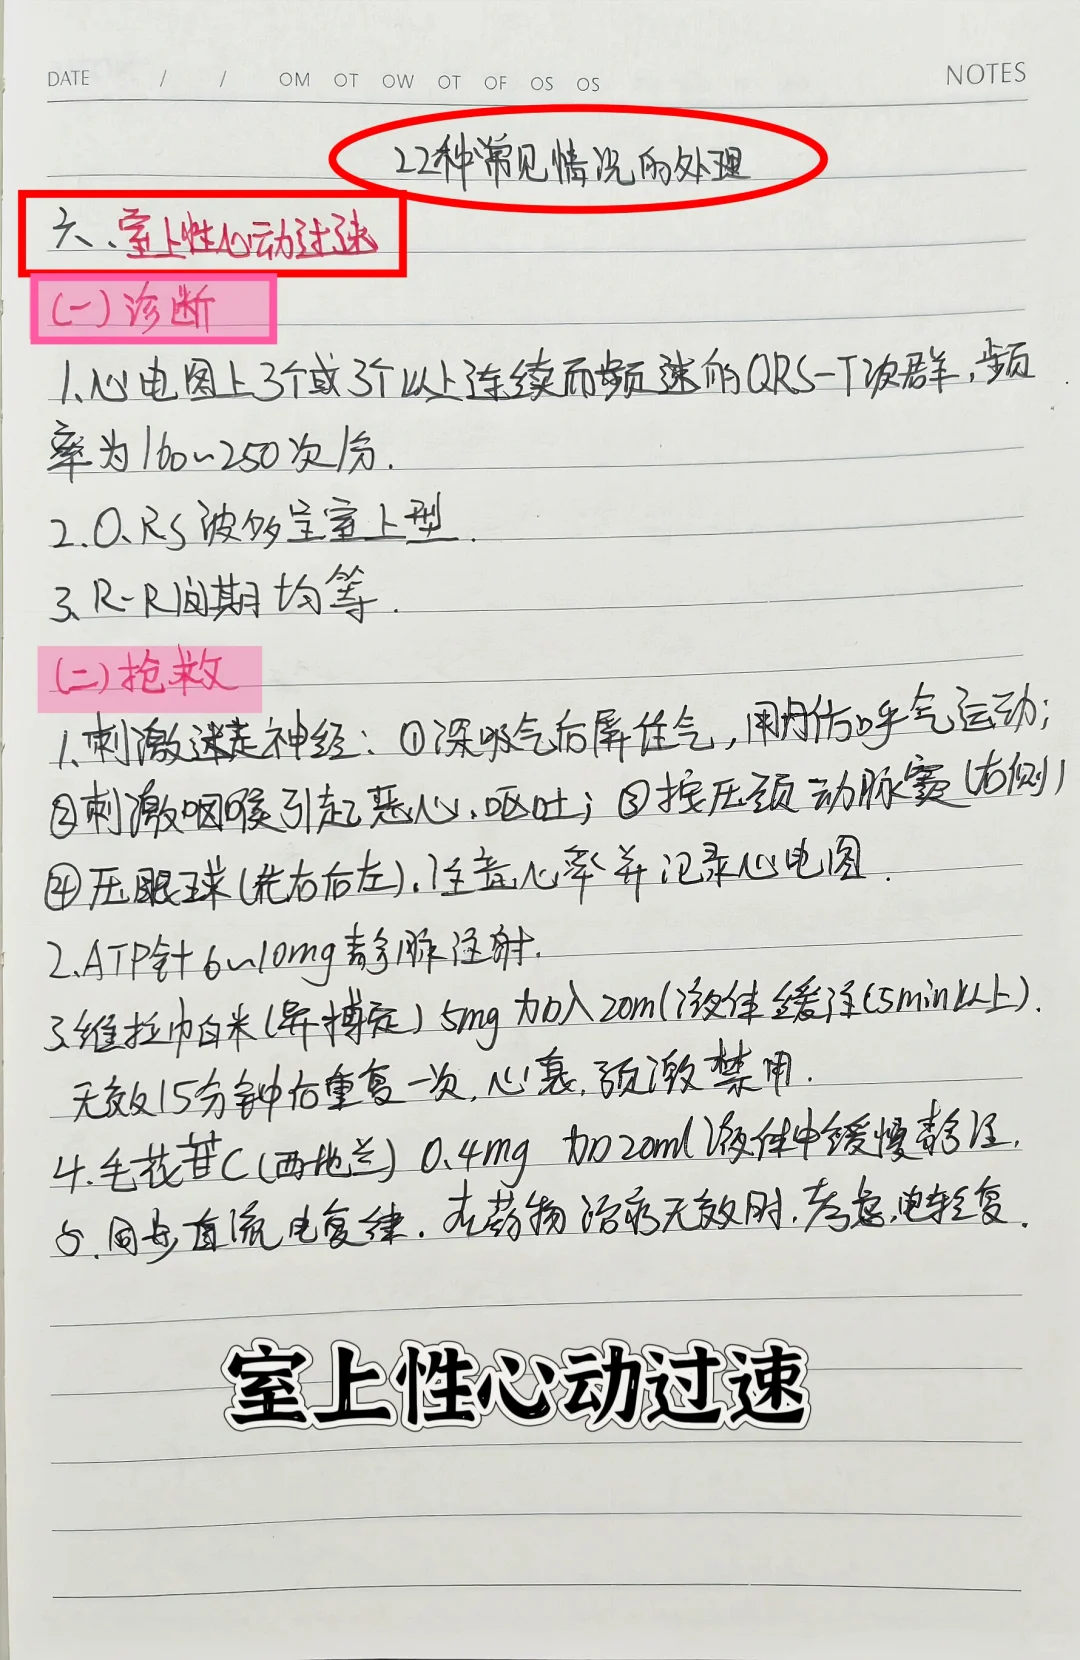 DATE / / OM OT OW OT OF OS OS NOTES
22种常见情况的处理
六、室上性心动过速
(一)诊断
1.心电图上3个或3个以上连续而频速的QRS-T波群,频
率为160~250次/分.
2.Q.RS波多呈室上型.
3.R-R间期均等.
(二)抢救
1.刺激迷走神经:①深吸气后屏住气,用力作呼气运动;
②刺激咽喉引起恶心、呕吐;③按压颈动脉窦(右侧)
④压眼球(先右后左).注意心率并记录心电图.
2.ATP针6~10mg静脉注射.
3.维拉帕米(异搏定)5mg加入20ml液体缓注(5min以上).
无效15分钟后重复一次,心衰,预激禁用.
4.毛花苷C(西地兰)0.4mg加20ml液体中缓慢静注.
5.同步直流电复律.在药物治疗无效时.考虑电转复.
室上性心动过速